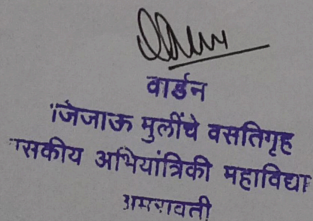 वार्डन
जिजाऊ मुलींचे वसतिगृह
सकीय अभियांत्रिकी महाविद्या
अमरावती